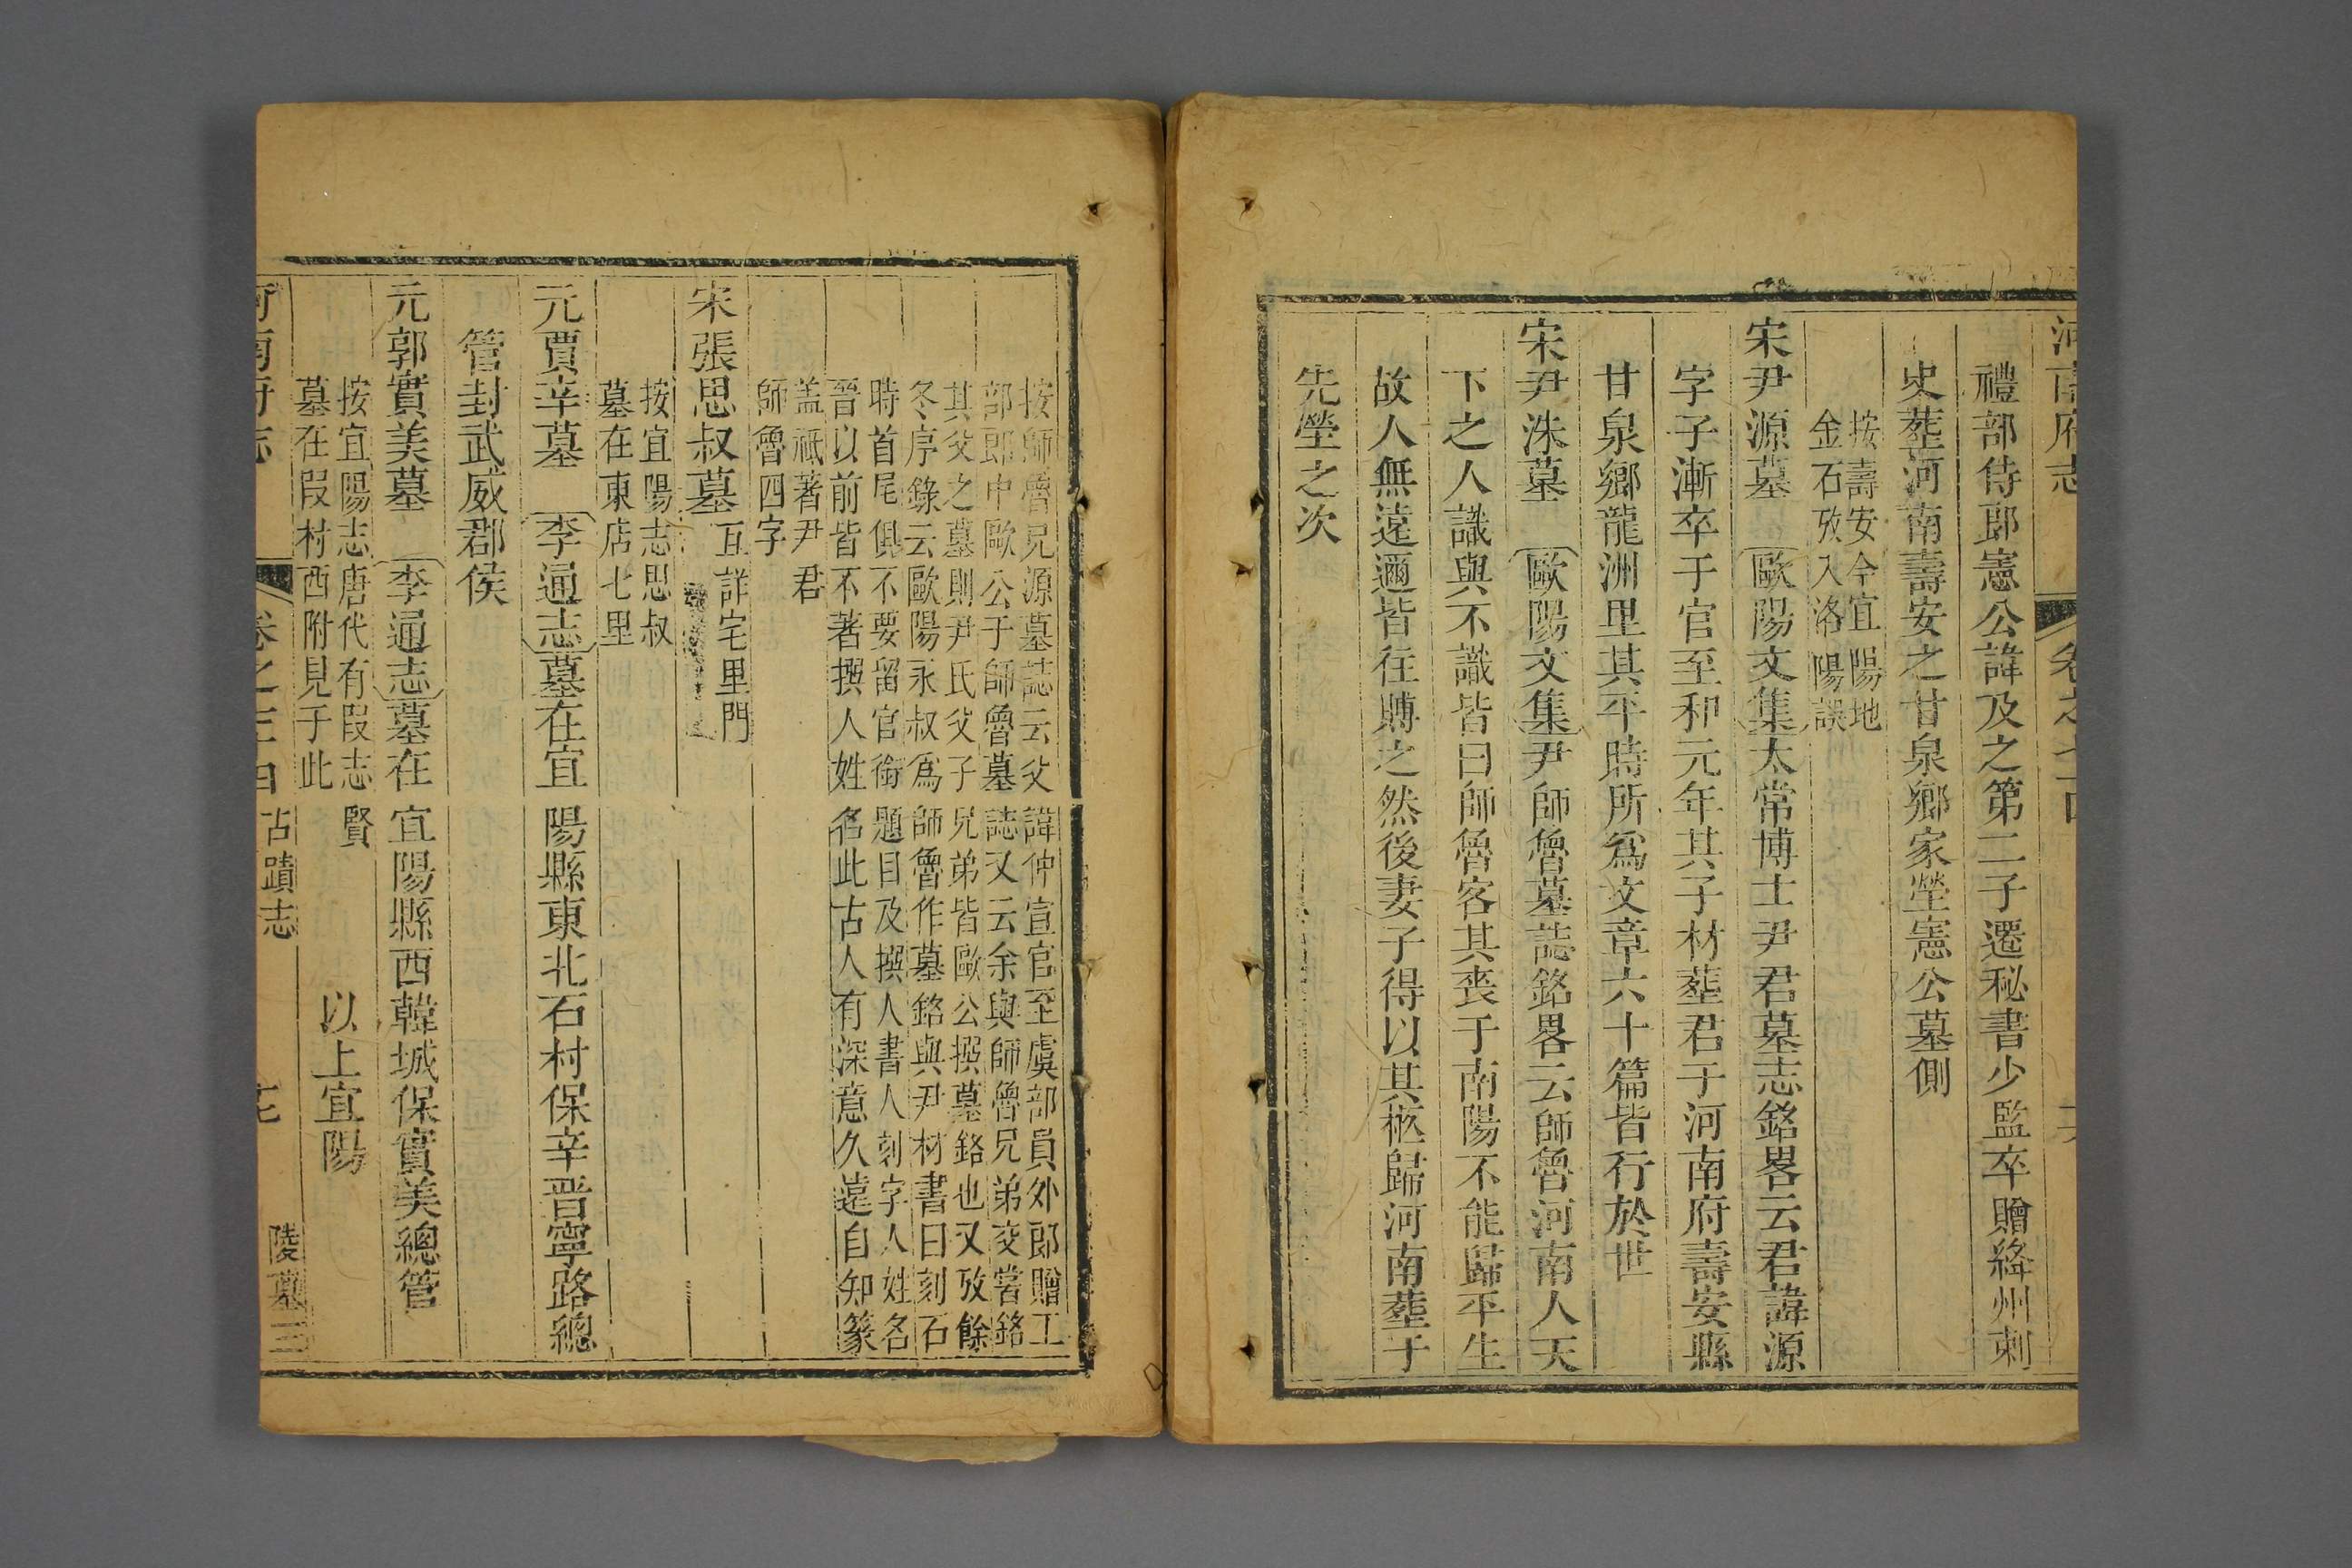 河南府志 卷之
禮部侍郎憲公諱及之第二子遷秘書少監卒贈絳州刺
史塟河南壽安之甘泉鄉家塋憲公墓側
按壽安今宜陽地
金石攷入洛陽誤
宋尹源墓 歐陽文集太常博士尹君墓志銘畧云君諱源
字子漸卒于官至和元年其子材塟君于河南府壽安縣
甘泉鄉龍洲里其平時所爲文章六十篇皆行於世
宋尹洙墓 歐陽文集尹師魯墓誌銘畧云師魯河南人天
下之人識與不識皆曰師魯客其喪于南陽不能歸平生
故人無遠邇皆往賻之然後妻子得以其柩歸河南塟于
先塋之次
按師魯兄源墓誌云父諱仲宣官至虞部員外郎贈工
部郎中歐公于師魯墓誌又云余與師魯兄弟交嘗銘
其父之墓則尹氏父子兄弟皆歐公撰墓銘也又攷餘
冬序錄云歐陽永叔爲師魯作墓銘與尹材書曰刻石
時首尾俱不要留官銜題目及撰人書人刻字人姓名
晉以前皆不著撰人姓名此古人有深意久遠自知篆
盖祗著尹君
師魯四字
宋張思叔墓 互詳宅里門
按宜陽志思叔
墓在東店七里
元賈辛墓 李通志墓在宜陽縣東北石村保辛晋寧路總
管封武威郡侯
元郭實美墓 李通志墓在宜陽縣西韓城保實美總管
按宜陽志唐代有叚志賢
墓在叚村西附見于此
以上宜陽
河南府志 卷之 古蹟志 陵墓三